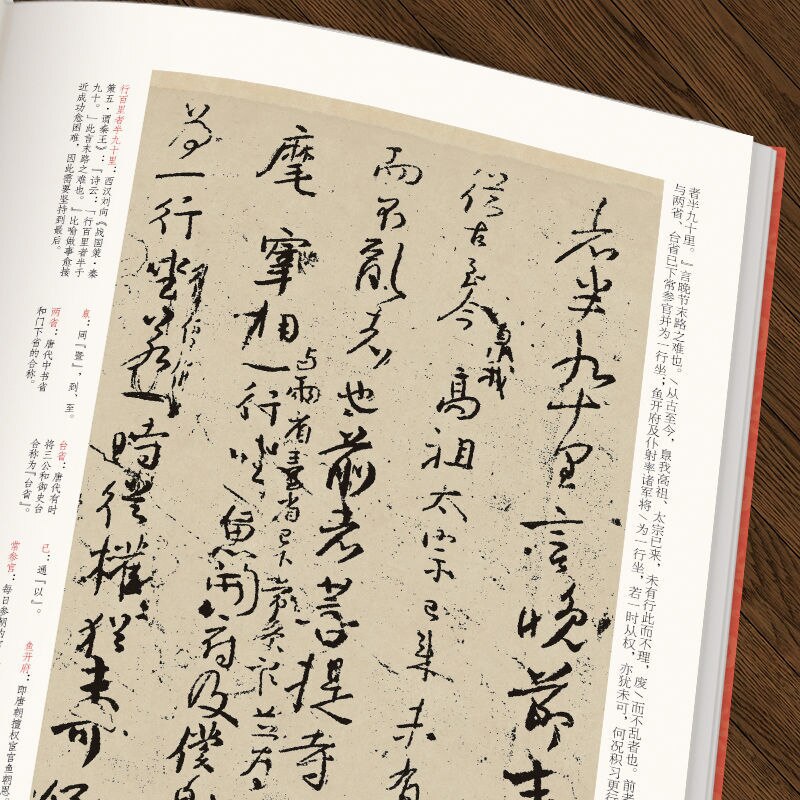 者半九十里。』言晚节末路之难也。/从古至今，臮我高祖、太宗已来，未有行此而不理，废/而不乱者也。前者
与两省、台省已下常参官并为一行坐；鱼开府及仆射率诸军将/为一行坐，若一时从权，亦犹未可，何况积习更行
者半九十里言晚节末
从古至今臮我高祖太宗已来未有
而不乱者也前者菩提寺
麾宰相一行坐鱼开府及仆
与两省台省已下常参官并为
为一行坐若一时从权犹未可
行百里者半九十里：西汉刘向《战国策·秦
策五·谓秦王》：「诗云：「行百里者半于
九十。」此言末路之难也。」比喻做事愈接
近成功愈困难，因此需要坚持到最后。
臮：同『暨』，到、至。
两省：唐代中书省
和门下省的合称。
台省：唐代有时
将三公和御史台
合称为『台省』。
已：通『以』。
常参官：每日参朝的
鱼开府：即唐朝擅权宦官鱼朝恩。